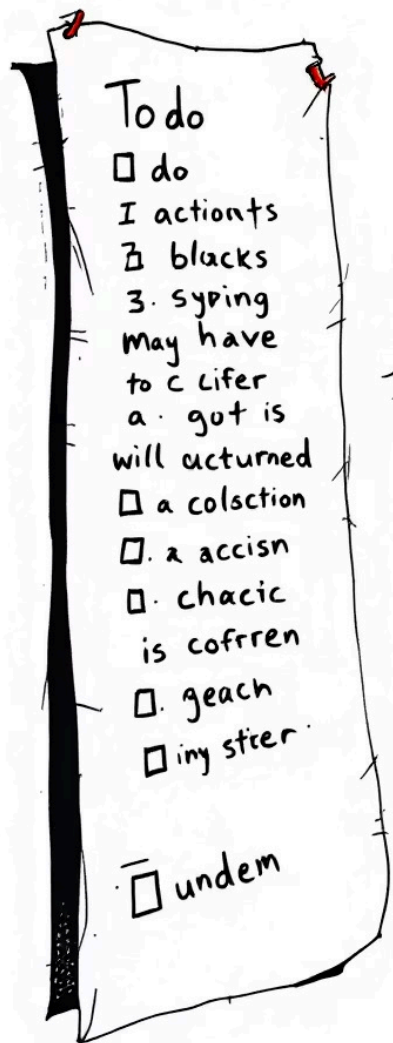 To do
☐ do
I actionts
2 blacks
3. syping
may have
to c lifer
a. got is
will acturned
☐ a colsction
☐. a accisn
☐. chacic
is cofrren
☐. geach
☐ iny strer
☐ undem